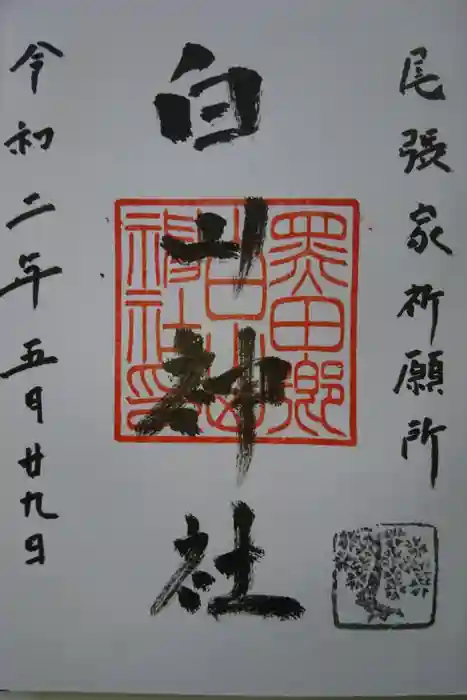 尾張家祈願所
白山神社
令和二年五月廿九日
黒田郷
白山
神社印